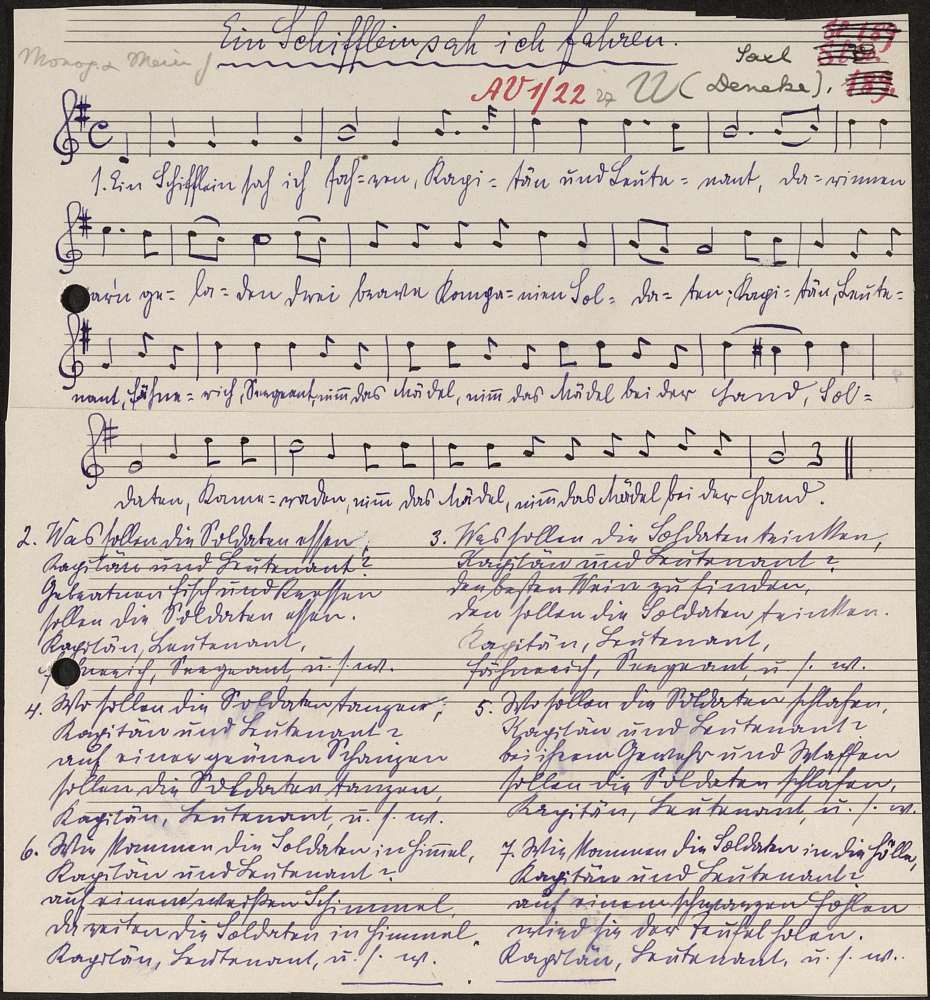 Ein Schifflein sah ich fahren.
Saxl
AV 1/22 W (Deneke). 189.
1. Ein Schifflein sah ich fah=ren, Kapi=tän und Leute=nant, da=rinnen
warn ge=la=den drei brave Kompa=nien Sol=da=ten; Kapi=tän, Leute=
nant, Fähne=rich, Sergeant, nimm das Mädel, nimm das Mädel bei der Hand, Sol=
daten, Kame=raden, nimm das Mädel, nimm das Mädel bei der Hand.
2. Was sollen die Soldaten essen,
Kapitän und Leutenant?
Gebratnen Fisch und Kressen
sollen die Soldaten essen.
Kapitän, Leutenant,
Fähnerich, Sergeant, u. s. w.
3. Was sollen die Soldaten trinken,
Kapitän und Leutenant?
den besten Wein zu finden,
den sollen die Soldaten trinken.
Kapitän, Leutenant,
Fähnerich, Sergeant, u. s. w.
4. Wo sollen die Soldaten tanzen,
Kapitän und Leutenant?
auf einer grünen Schanzen
sollen die Soldaten tanzen,
Kapitän, Leutenant, u. s. w.
5. Wo sollen die Soldaten schlafen,
Kapitän und Leutenant?
bei ihrem Gewehr und Waffen
sollen die Soldaten schlafen,
Kapitän, Leutenant, u. s. w.
6. Wie kommen die Soldaten in Himmel,
Kapitän und Leutenant?
auf einem weißen Schimmel,
da reiten die Soldaten in Himmel.
Kapitän, Leutenant, u. s. w.
7. Wie kommen die Soldaten in die Hölle,
Kapitän und Leutenant?
auf einem schwarzen Fohlen
wird sie der Teufel holen.
Kapitän, Leutenant, u. s. w.